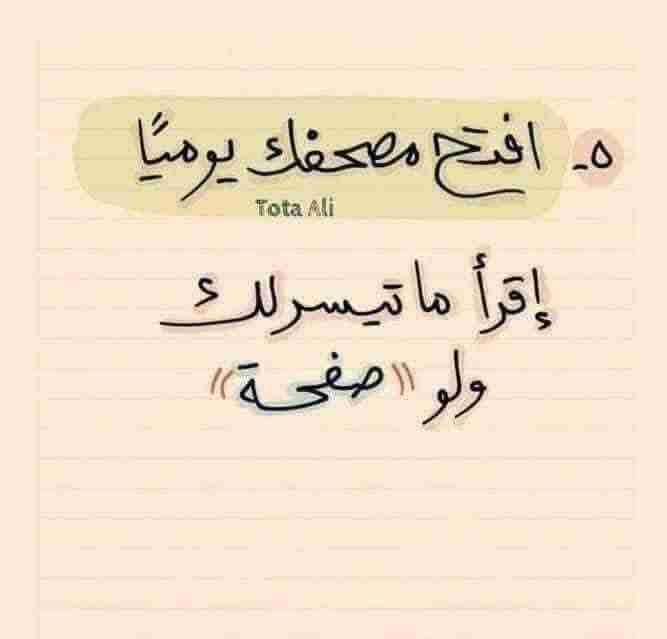 ٥- افتح مصحفك يوميًا
Tota Ali
إقرأ ما تيسر لك
ولو ((صفحة))